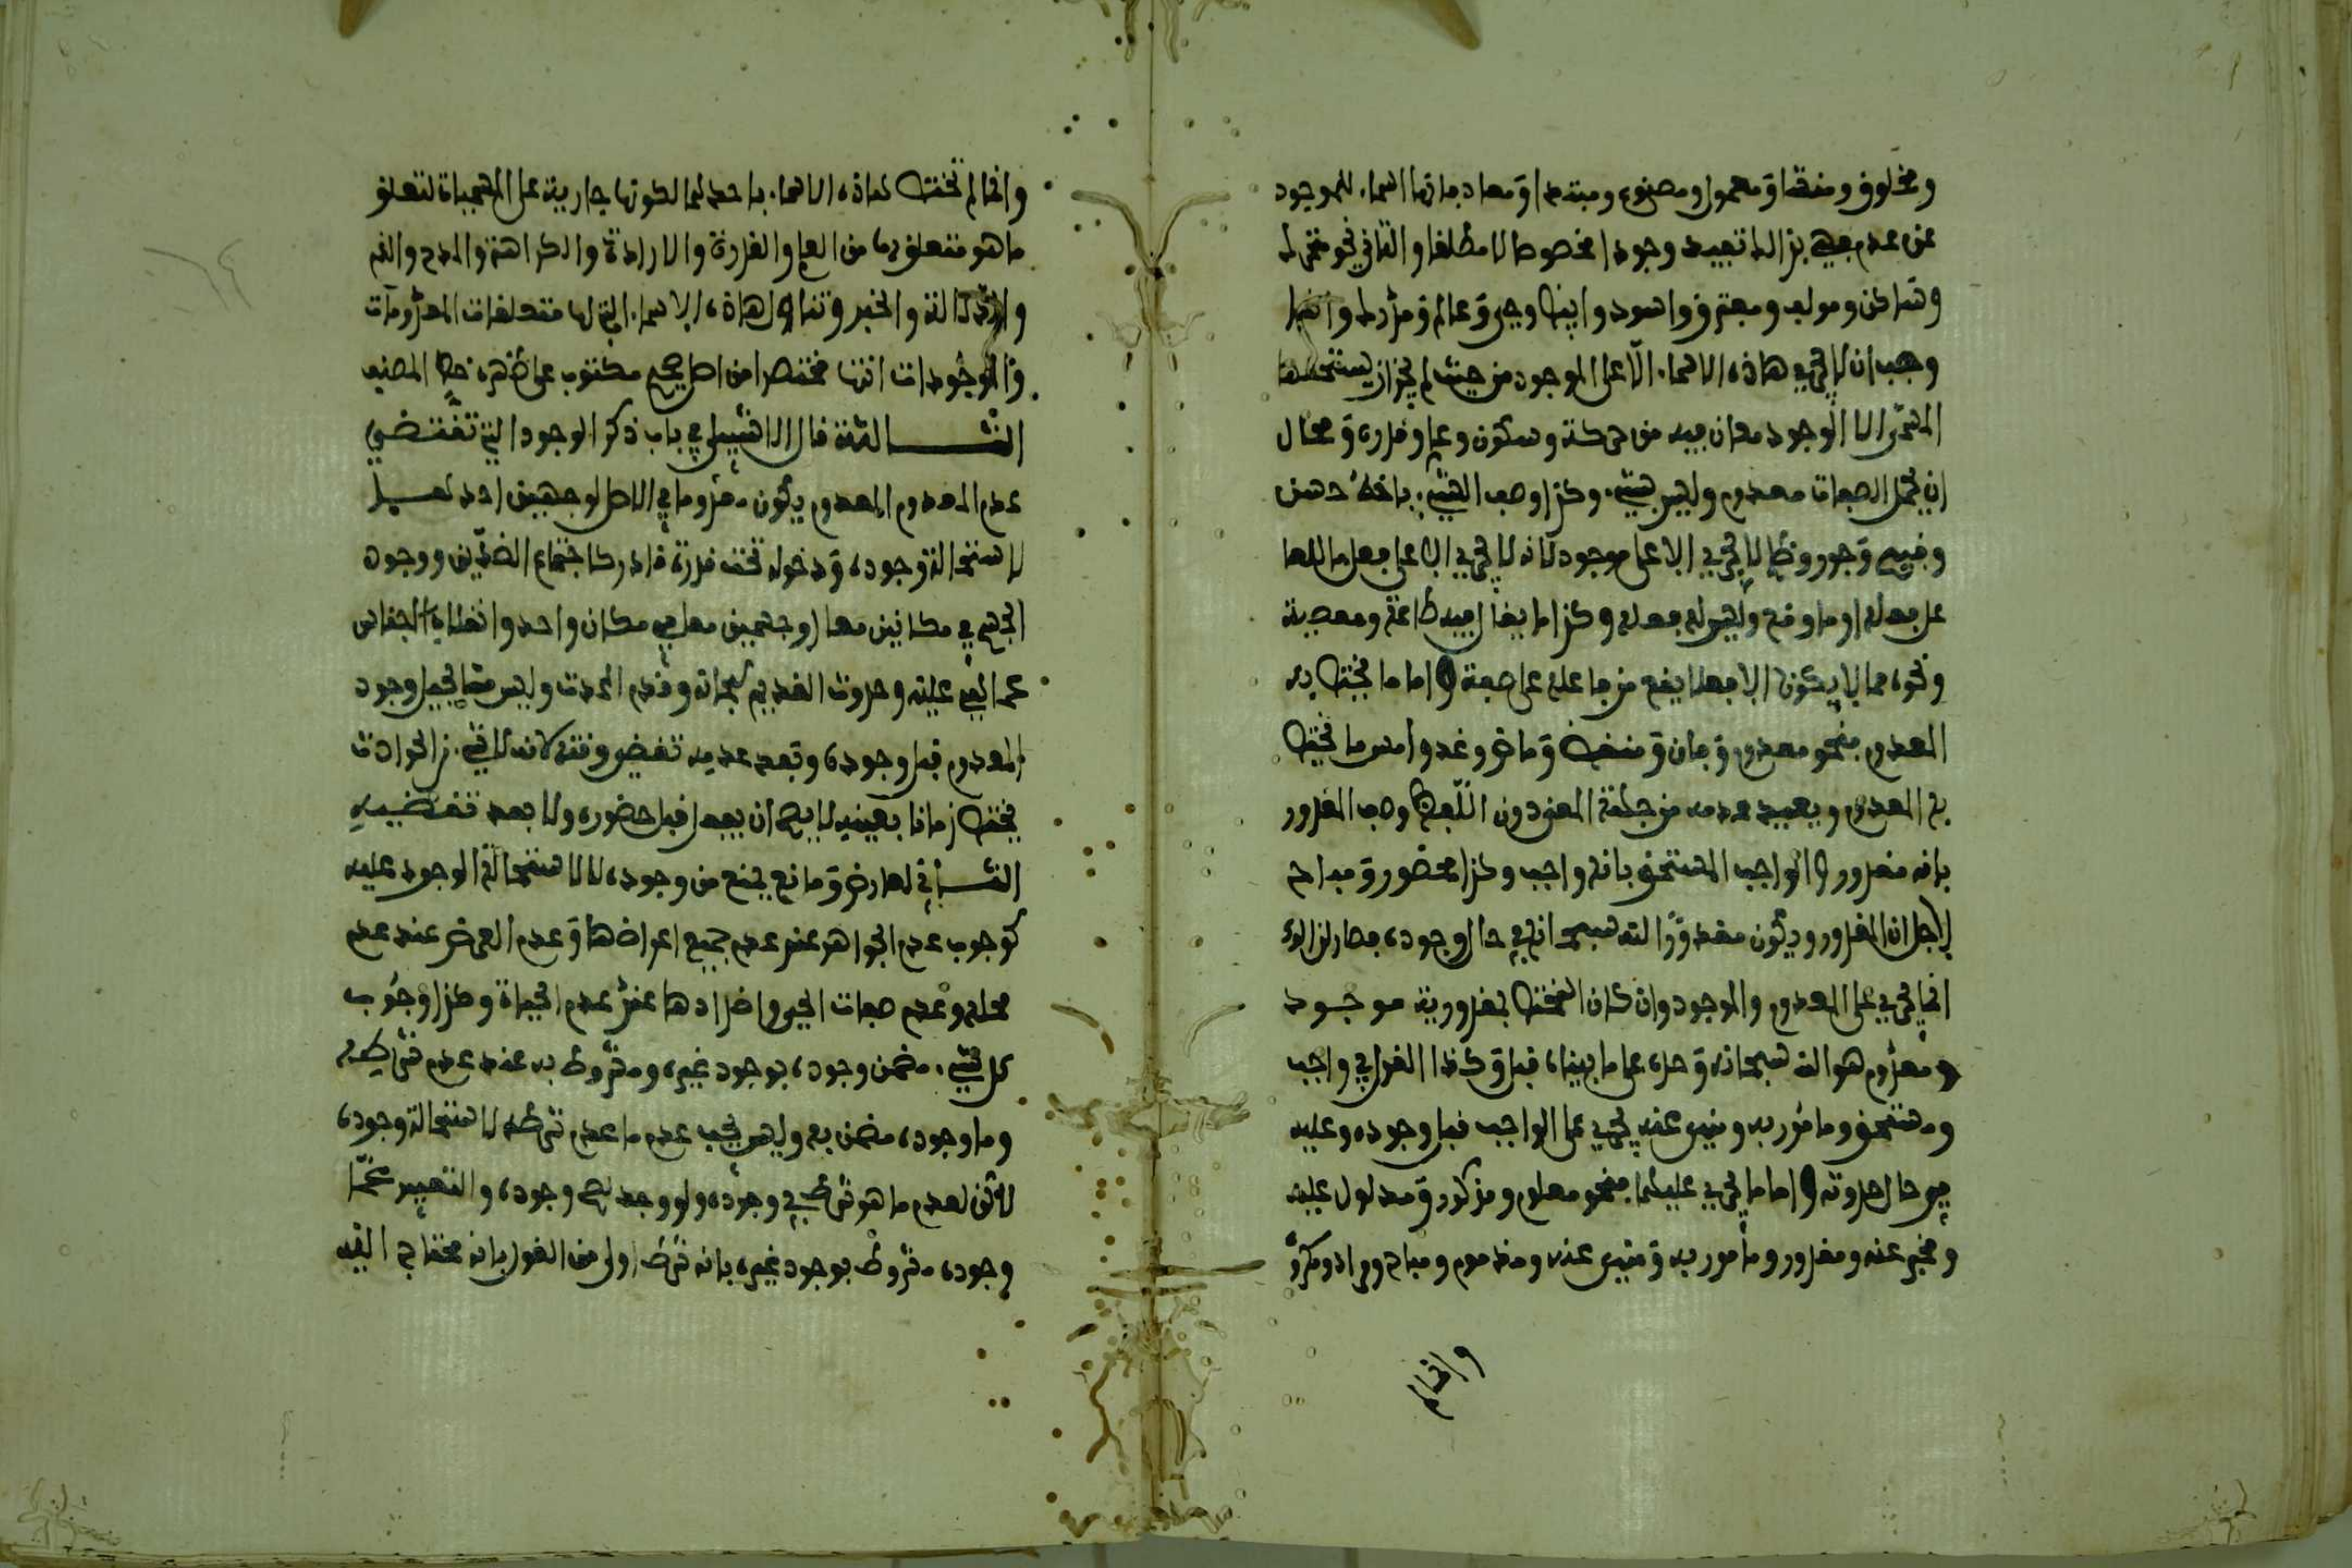 ومخلوق ومنشا ومعمول ومصنوع ومبتدا ومعاد بانها اسماء للموجود
عن عدم فهي بذالك تفيد وجودا مخصوصا لا مطلقا والثاني نحو متحرك
وساكن ومولف ومفترق واسود وابيض وحي وعالم ومدرك وانما
وجب ان لا تجري هاذه الاسماء الا على الموجود من حيث لم يجز ان يستحقها
المسمى الا لوجود معان فيه من حركة وسكون وعلم وقدرة ومحال
ان تحل الصفات معدوم وليس بشيء وكذا وصف الشيء بانه حسن
وقبيح وجور وظلم لا يجري الا على موجود لانه لا يجري الا على فعل ما للفاعل
على فعله او ما وقع وليس له فعله وكذا ما يقال فيه طاعة ومعصية
ونحوه مما لا يكون الا فعلا يقع من فاعله على صفة واما ما يختص به
المعدوم فنحو معدوم وفان ومنقض وماض وغد وامس ما يختص
به المعدوم ويفيد عدمه من جملة المعدودين اللفظ وصف المقدور
بانه مقدور والواجب المستحق بانه واجب وكذا محضور ومباح
لاجل ان المقدور ويكون مقدورا لله سبحانه في حال وجوده فصار لذالك
انما يجري على المعدوم والموجود وان كان المختص بمقدورية موجود
ومعدوم هو الله سبحانه وحده على ما بيناه قبل وكذا القول في واجب
ومستحق ومامور به ومنهي عنه يجري على الواجب قبل وجوده وعليه
في حال حدوثه واما ما يجري عليهما فنحو معلوم ومذكور ومدلول عليه
ومخبر عنه ومقدور ومامور به ومنهي عنه ومذموم ومباح ومراد ومكروه
وانما لم
وانما لم تختص هاذه الاسماء باحدهما لكونها جارية على المسميات لتعلق
ما هو متعلق بها من العلم والقدرة والارادة والكراهة والمدح والذم
والدلالة والخبر وتناول هاذه الاسماء التي لها متعلقات المعدومات
والموجودات انتها مختصرا من اصل صحيح مكتوب على ظهره خط المصنف
الثالثة قال الاشبيلي في باب ذكر الوجود التي تقتضي
عدم المعدوم المعدوم يكون معدوما في الاصل لوجهين احدهما
لاستحالة وجوده ودخوله تحت قدرة قادر كاجتماع الضدين ووجود
الجسم في مكانين معا وجسمين معا في مكان واحد وانقلاب الاجناس
عما هي عليه وحدوث القديم سبحانه وقدم المحدث وليس مستحيل وجود
المعدوم قبل وجوده وبعد عدمه تقضي وقته لانه لا شيء من الحوادث
يختص زمانا بعينه لا يصح ان يفعل قبل حضوره ولا بعد تقضيه
الثاني لعارض ومانع يمنع من وجوده لا لاستحالة الوجود عليه
كوجوب عدم الجواهر عند عدم جميع اعراضها وعدم العرض عند عدم
محله وعدم صفات الحي واضدادها عند عدم الحياة وكذا وجوب
كل شيء مضمن وجوده بوجود غيره ومشروط به عند عدم شرطه
وما وجوده مضمن به وليس يجب عدم ما عدم شرطه لاستحالة وجوده
لاكن لعدم ما هو شرط في وجوده ولو وجد لصح وجوده والتعبير عما
وجوده مشروط بوجود غيره بانه شرط اولى من القول بانه محتاج اليه